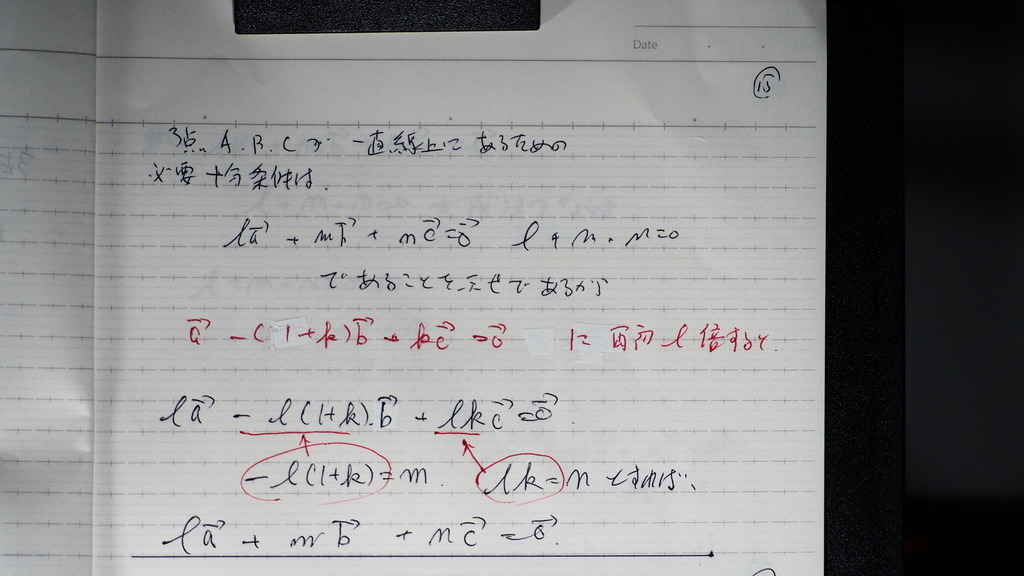 Date
⑮
3点、A.B.Cが一直線上にあるための
必要十分条件は、
la⃗ + mb⃗ + nc⃗ = o⃗ l+m+n=0
であることを示せであるから
a⃗ -(1+k)b⃗ + kc⃗ = o⃗ に両辺l倍すると、
la⃗ - l(1+k).b⃗ + lkc⃗ = o⃗.
-l(1+k)=m. lk=nとすれば、
la⃗ + mb⃗ + nc⃗ = o⃗.